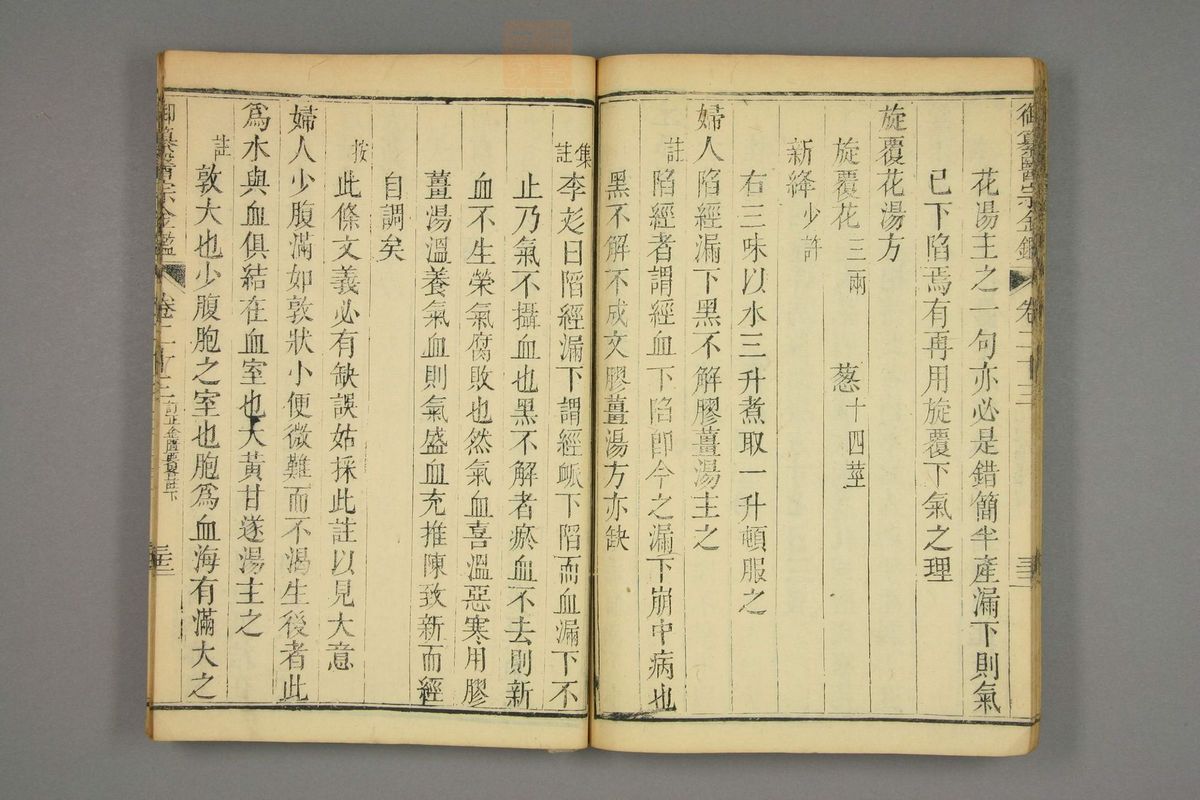 御纂醫宗金鑑 卷二十三
花湯主之一句亦必是錯簡半產漏下則氣
已下陷焉有再用旋覆下氣之理
旋覆花湯方
旋覆花三兩 葱十四莖
新絳少許
右三味以水三升煮取一升頓服之
婦人陷經漏下黑不解膠薑湯主之
註 陷經者謂經血下陷卽今之漏下崩中病也
黑不解不成文膠薑湯方亦缺
集註 李彣曰陷經漏下謂經脈下陷而血漏下不
止乃氣不攝血也黑不解者瘀血不去則新
血不生榮氣腐敗也然氣血喜溫惡寒用膠
薑湯溫養氣血則氣盛血充推陳致新而經
自調矣
按 此條文義必有缺誤姑採此註以見大意
婦人少腹滿如敦狀小便微難而不渴生後者此
爲水與血俱結在血室也大黃甘遂湯主之
註 敦大也少腹胞之室也胞爲血海有滿大之
御纂醫宗金鑑 卷二十三 訂正金匱要畧註下